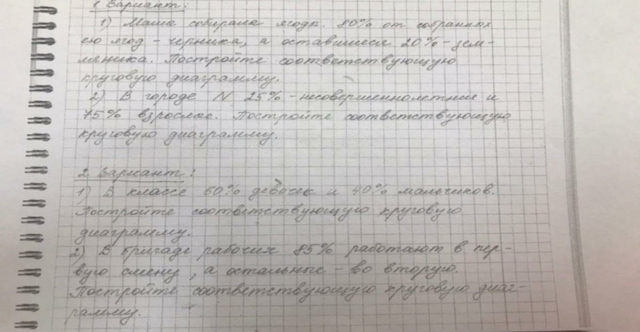 1 Вариант:
1) Маша собирала ягоды. 80% от собранных
ею ягод - черника, а оставшиеся 20% - зем-
ляника. Постройте соответствующую
круговую диаграмму.
2) В городе N 25% - несовершеннолетние и
75% взрослые. Постройте соответствующую
круговую диаграмму.
2 Вариант:
1) В классе 60% девочек и 40% мальчиков.
Постройте соответствующую круговую
диаграмму.
2) В бригаде рабочих 85% работают в пер-
вую смену, а остальные - во вторую.
Постройте соответствующую круговую диаг-
рамму.